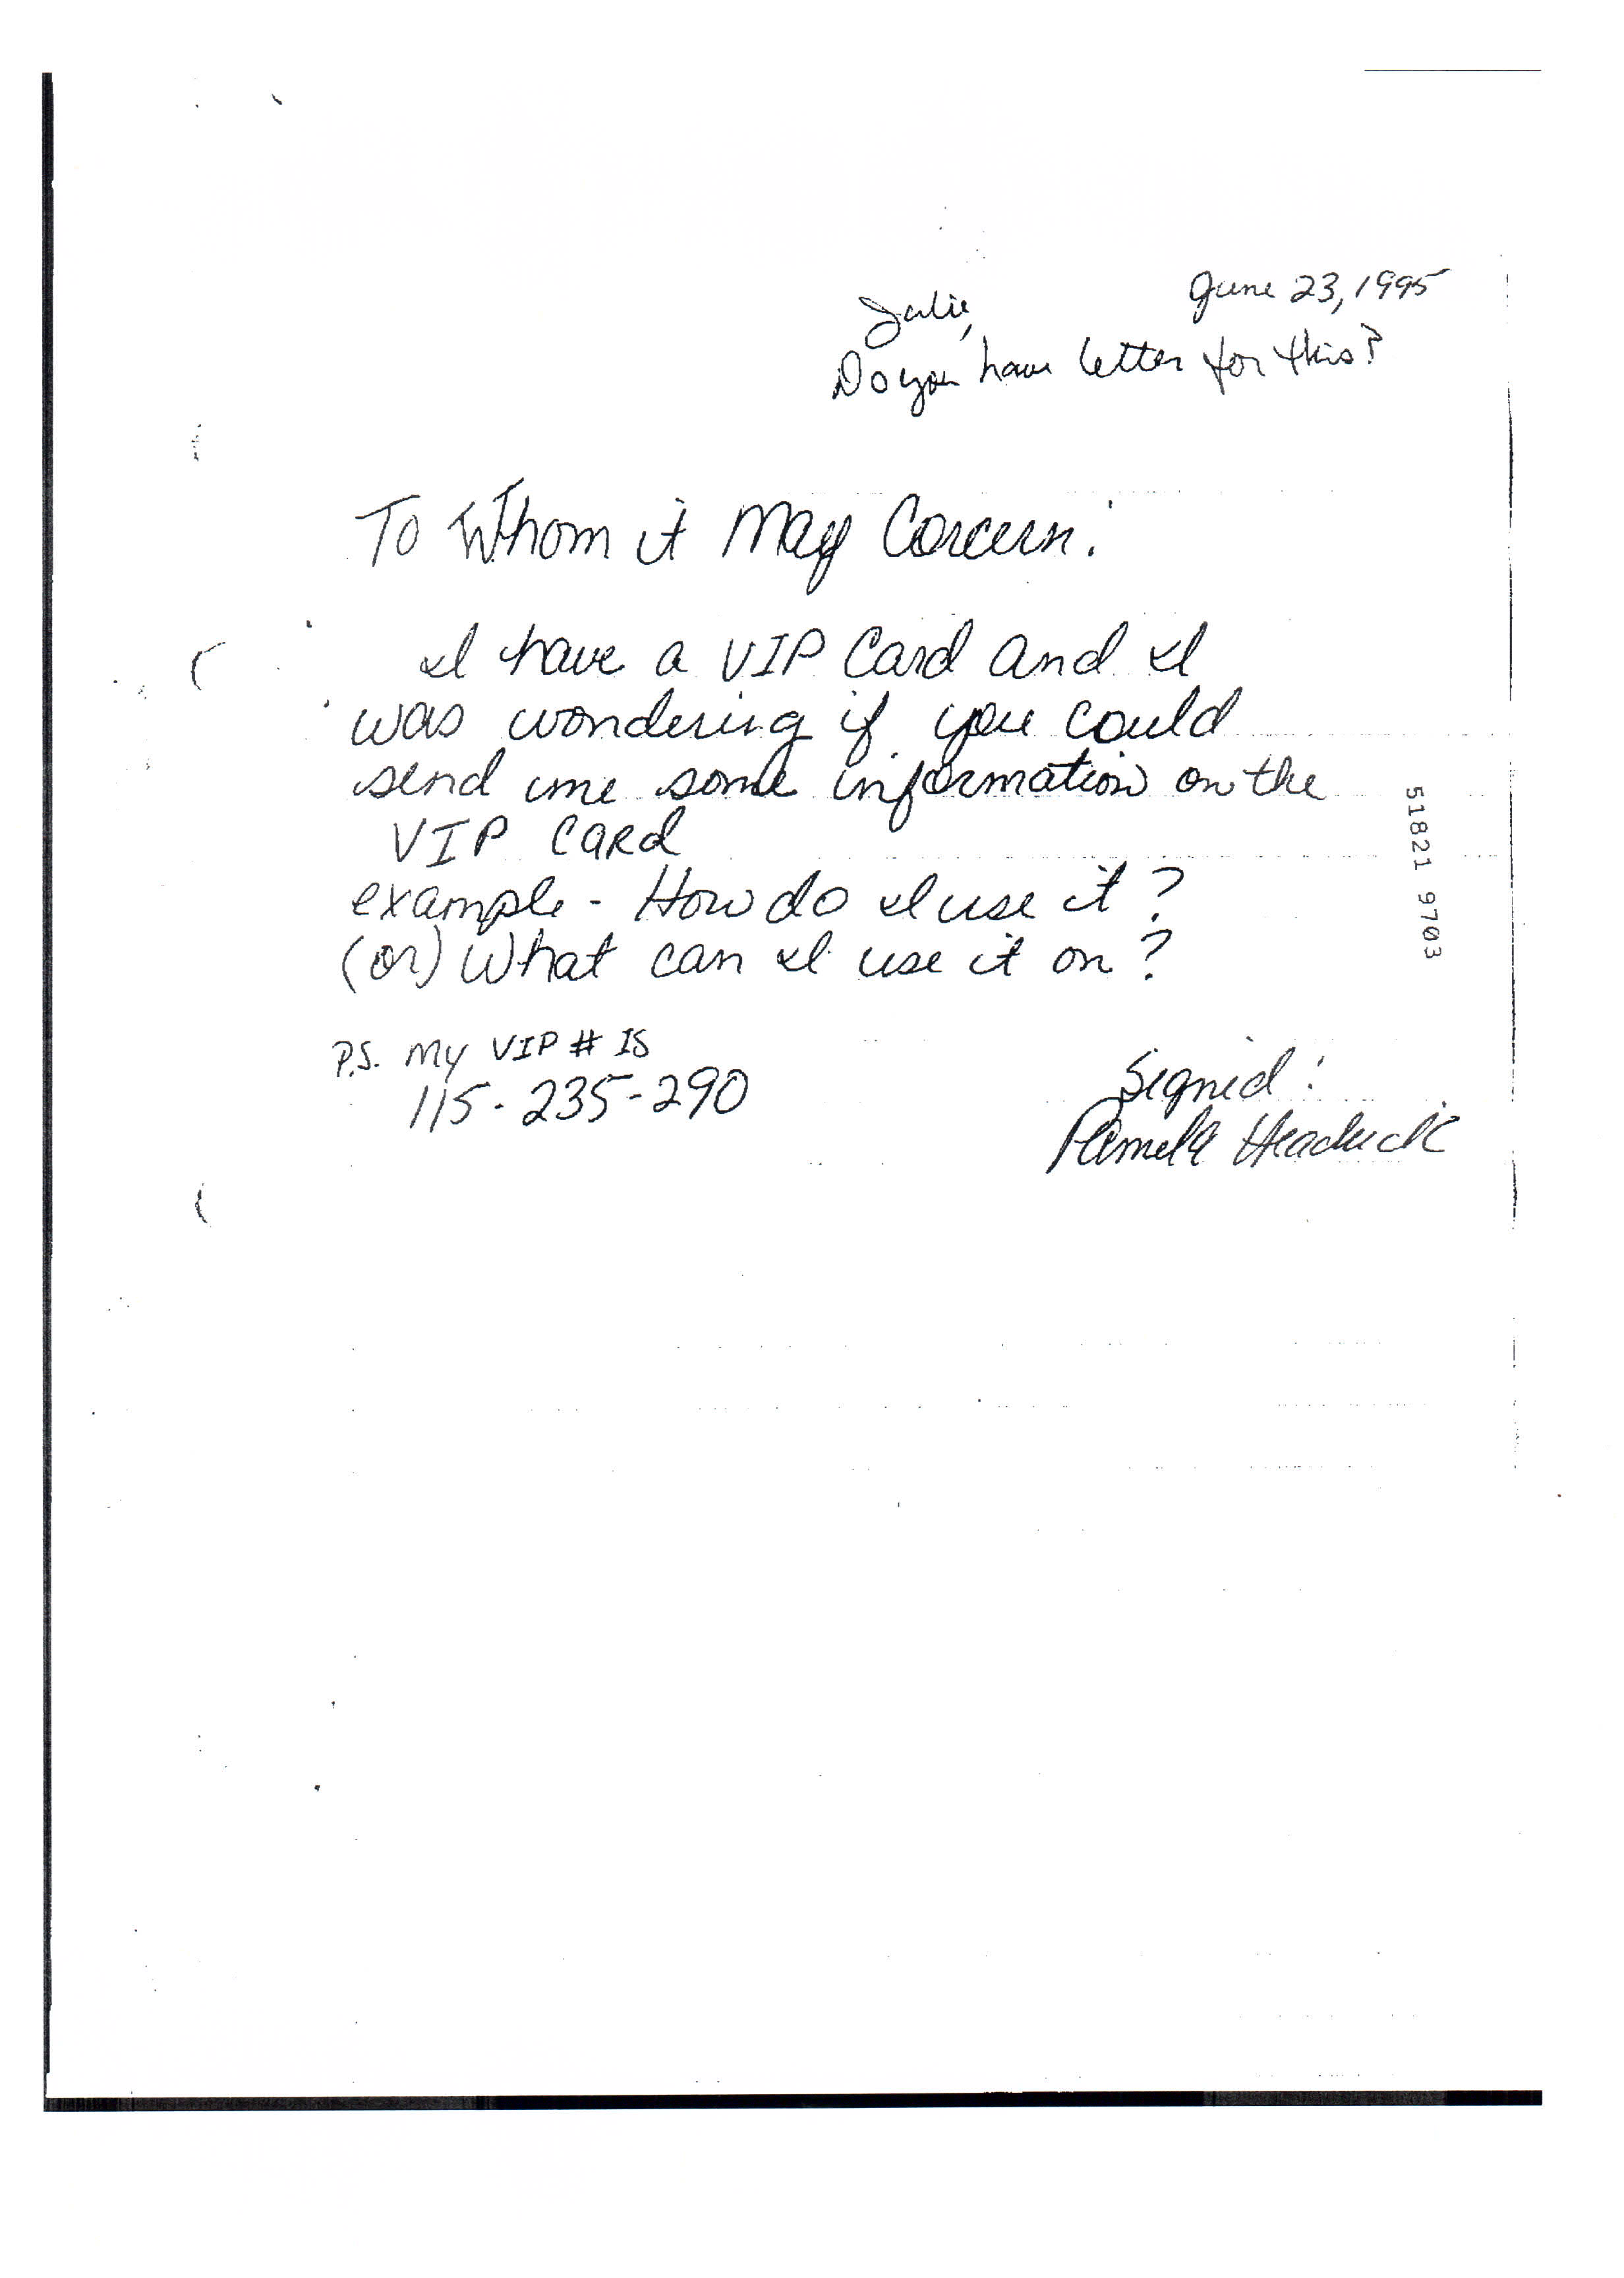 June 23, 1995
Julie,
Do you have letter for this?
To Whom it May Concern:
I have a VIP Card and I
was wondering if you could
send me some information on the
VIP CARd
example - How do I use it?
(or) What can I use it on?
P.S. My VIP # IS
115-235-290
Signed:
Pamela
51821 9703